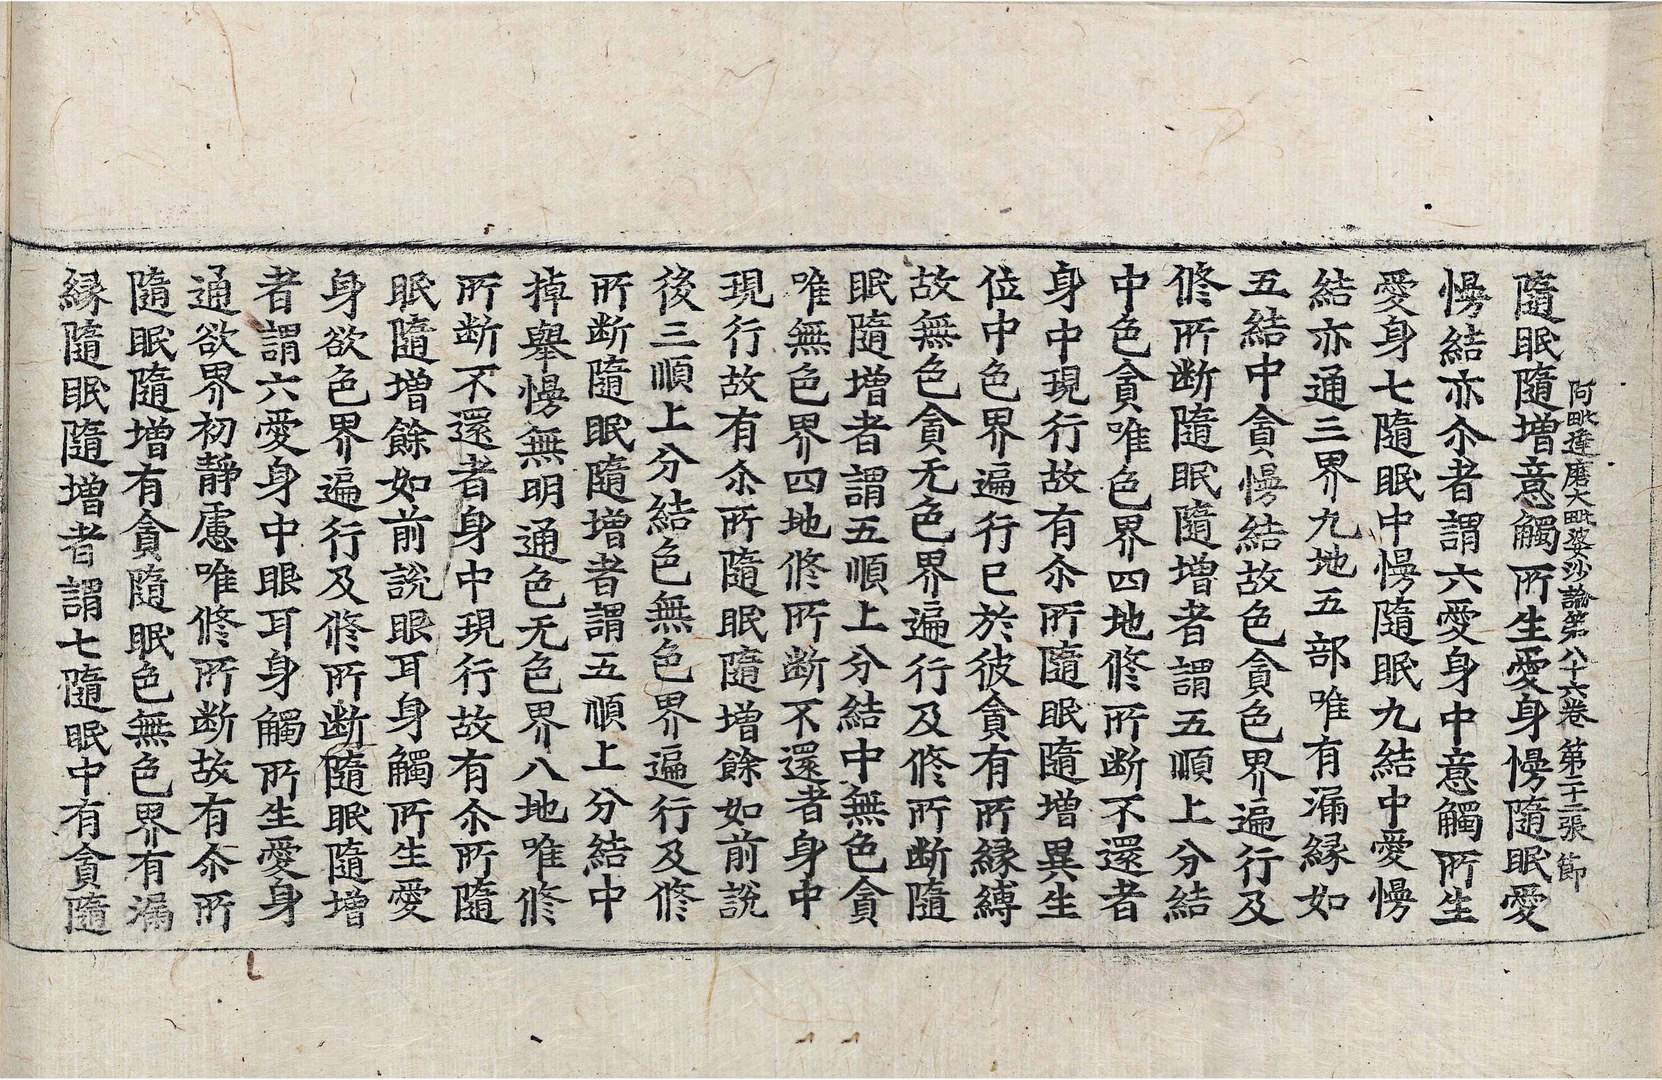 阿毗達磨大毗婆沙論第八十六卷 第二十二張 節
隨眠隨增意觸所生愛身慢隨眠愛
慢結亦尒者謂六愛身中意觸所生
愛身七隨眠中慢隨眠九結中愛慢
結亦通三界九地五部唯有漏緣如
五結中貪慢結故色貪色界遍行及
修所斷隨眠隨增者謂五順上分結
中色貪唯色界四地修所断不還者
身中現行故有尒所隨眠隨增異生
位中色界遍行已於彼貪有所緣縛
故無色貪无色界遍行及修所断隨
眠隨增者謂五順上分結中無色貪
唯無色界四地修所断不還者身中
現行故有尒所隨眠隨增餘如前說
後三順上分結色無色界遍行及修
所断隨眠隨增者謂五順上分結中
掉舉慢無明通色无色界八地唯修
所断不還者身中現行故有尒所隨
眠隨增餘如前說眼耳身觸所生愛
身欲色界遍行及修所断隨眠隨增
者謂六愛身中眼耳身觸所生愛身
通欲界初靜慮唯修所断故有尒所
隨眠隨增有貪隨眠色無色界有漏
緣隨眠隨增者謂七隨眠中有貪隨